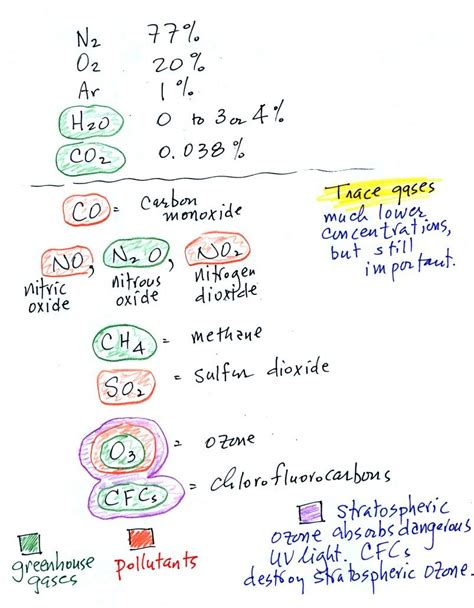 N2 77%
O2 20%
Ar 1%
H2O 0 to 3 or 4%
CO2 0.038%
CO = Carbon monoxide
Trace gases
much lower
concentrations,
but still
important.
NO, N2O, NO2
nitric oxide
nitrous oxide
nitrogen dioxide
CH4 = methane
SO2 = sulfur dioxide
O3 = ozone
CFCs = chlorofluorocarbons
greenhouse gases
pollutants
Stratospheric
ozone absorbs dangerous
UV light. CFCs
destroy stratospheric ozone.